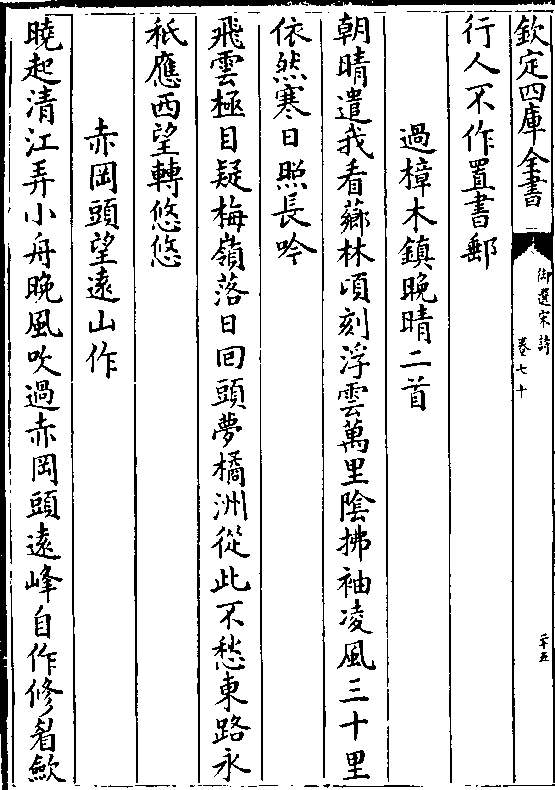 欽定四庫全書
御選宋詩
卷七十
二十五
行人不作置書郵
過樟木鎮晚晴二首
朝晴遣我看薌林頃刻浮雲萬里陰拂袖凌風三十里
依然寒日照長吟
飛雲極目疑梅嶺落日回頭夢橘洲從此不愁東路永
秪應西望轉悠悠
赤岡頭望遠山作
曉起清江弄小舟晚風吹過赤岡頭遠峰自作修眉歛